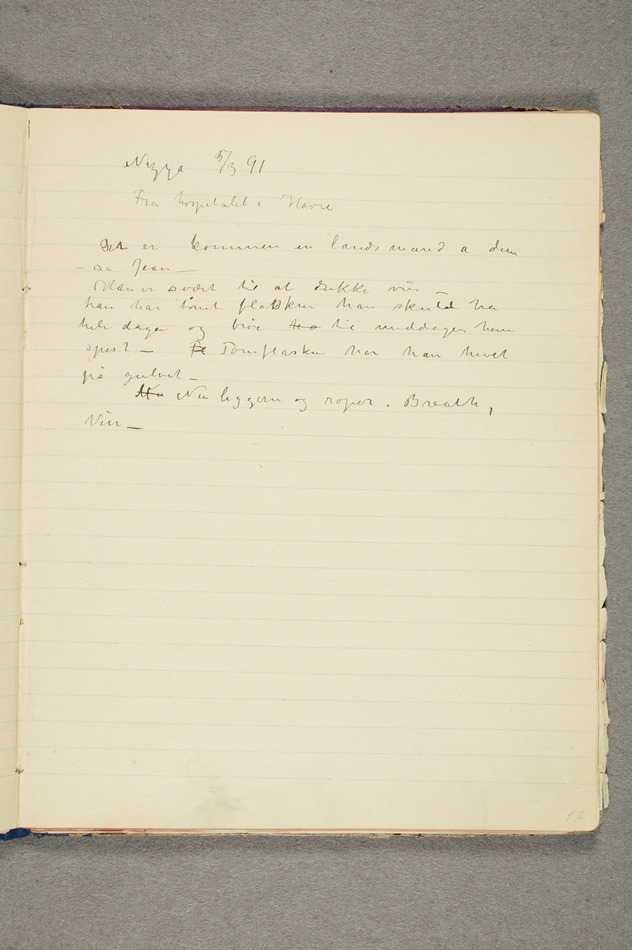 Nizza 5/3 91
Fra hospitalet i Havre
Det er kommen en landsmand a dem
– sa Jean –
Han er svært til at drikke vin –
han har tømt flasken han skulde ha
hele dagen og bare til middagen hans
spist – Tomflasken har han hivet
på gulvet –
Nu Nu ligger og roper. Breath,
Vin –
17